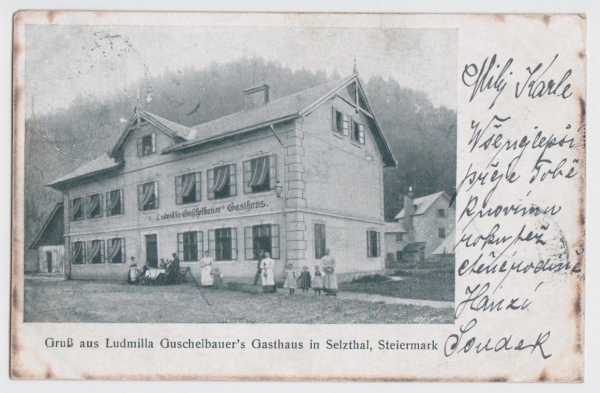 "Ludmilla Guschelbauer's Gasthaus.
Gruß aus Ludmilla Guschelbauer's Gasthaus in Selzthal, Steiermark
Milý Karle
Všenejlepší
přeje Tobě
k novímu
roku též
ctěné rodině
Hanzi
Soudek